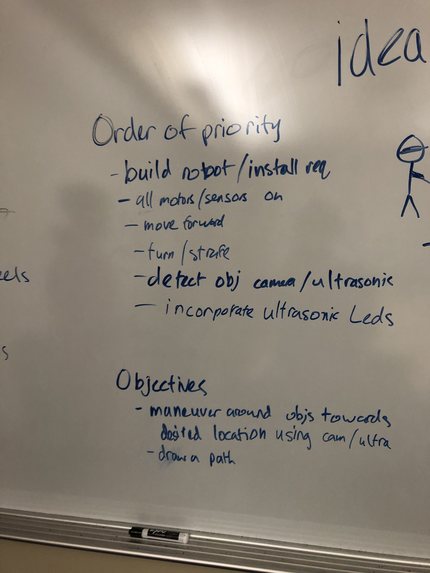 idea
Order of priority
- build robot/install req
- all motors/sensors on
- move forward
- turn/strafe
- detect obj camera/ultrasonic
- incorporate ultrasonic Leds
Objectives
- maneuver around objs towards
location using cam/ultra
- draw a path